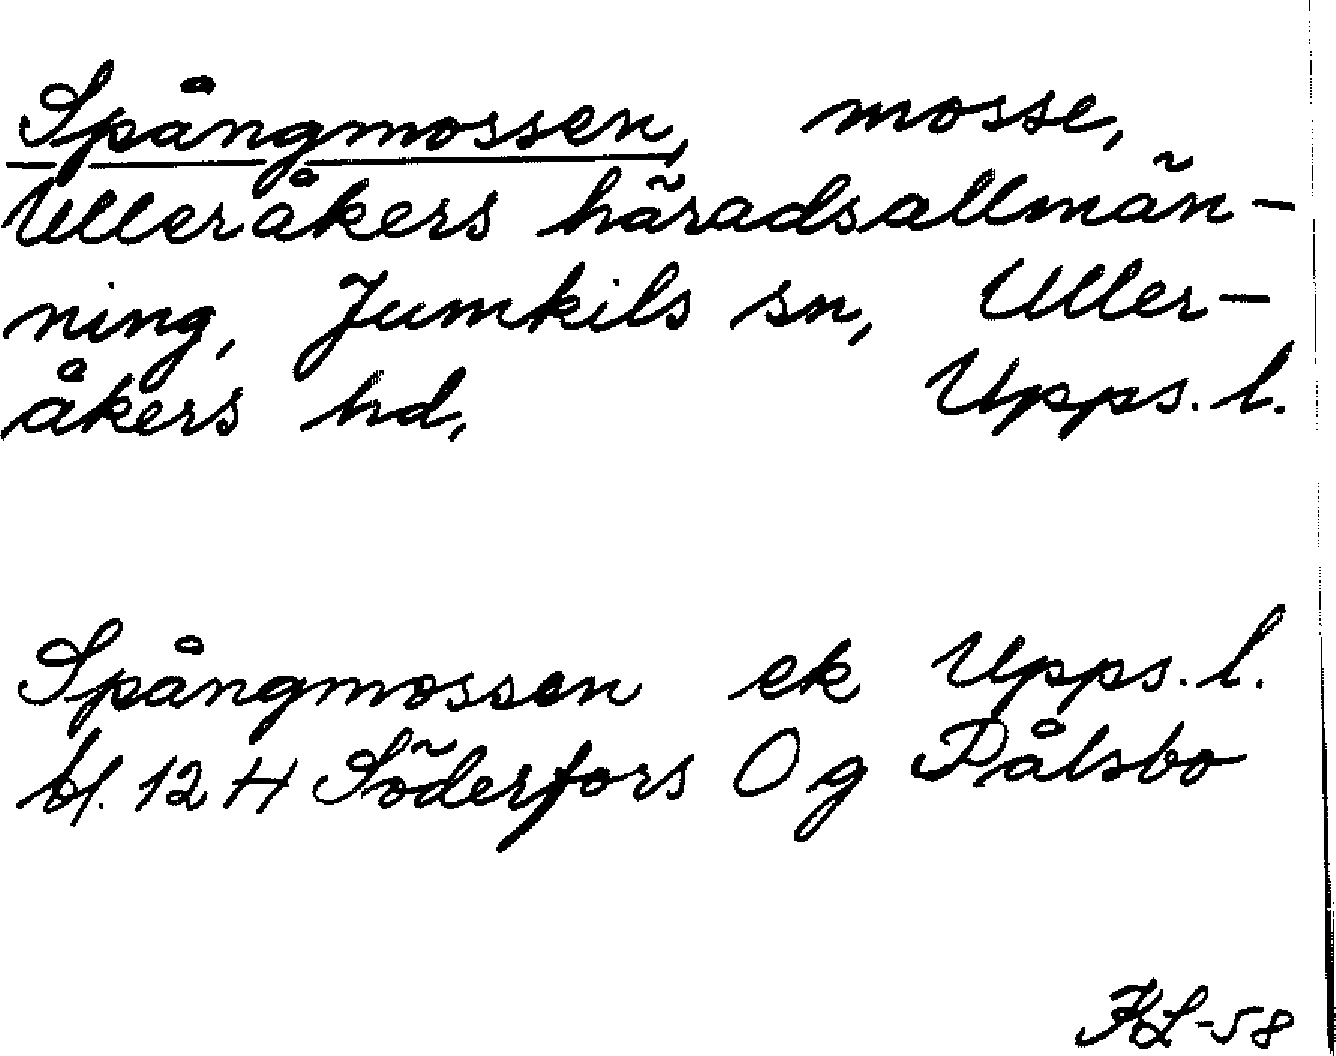 Spångmossen, mosse,
Ulleråkers häradsallmän-
ning, Jumkils sn, Uller-
åkers hd, Upps. l.
Spångmossen ek Upps. l.
bl. 12 H Söderfors O g Pålsbo
KL-58